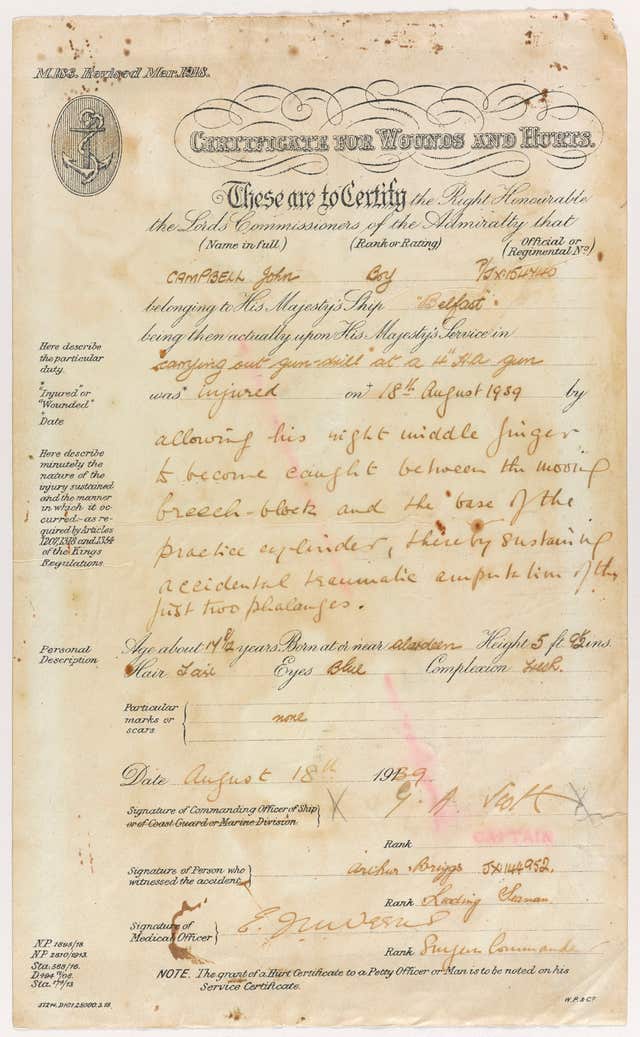 M.183. Revised Mar. 1918.
CERTIFICATE FOR WOUNDS AND HURTS.
These are to Certify the Right Honourable
the Lords Commissioners of the Admiralty that
(Name in full) (Rank or Rating) (Official or Regimental No)
CAMPBELL John Boy P/JX154740
belonging to His Majesty's Ship "Belfast".
being then actually upon His Majesty's Service in
Here describe
the particular
duty.
"carrying out gun-drill" at a 4" HA gun
*
"Injured" or
"Wounded"
was* injured on† 18th August 1939 by
†
Date
Here describe
minutely the
nature of the
injury sustained
and the manner
in which it oc-
curred:- as re-
quired by Articles
1207, 1318 and 1334
of the Kings
Regulations.
allowing his right middle finger
to become caught between the moving
breech-block and the base of the
practice cylinder, thereby sustaining
accidental traumatic amputation of the
first two phalanges.
Personal
Description
Age about 17 1/2 years. Born at or near Aberdeen Height 5 ft ins.
Hair Fair Eyes Blue Complexion Fresh.
Particular
marks or
scars.
none
Date August 18th 1939
Signature of Commanding Officer of Ship
or of Coast Guard or Marine Division
G. A. Scott
Rank CAPTAIN
Signature of Person who
witnessed the accident
Arthur Briggs JX144952
Rank Leading Seaman
Signature of
Medical Officer
E.
Rank Surgeon Commander
N.P. 1595/18.
N.P. 2510/1913.
Sta: 583/16.
Sta.
NOTE. The grant of a Hurt Certificate to a Petty Officer or Man is to be noted on his
Service Certificate.
W.P. & Co.